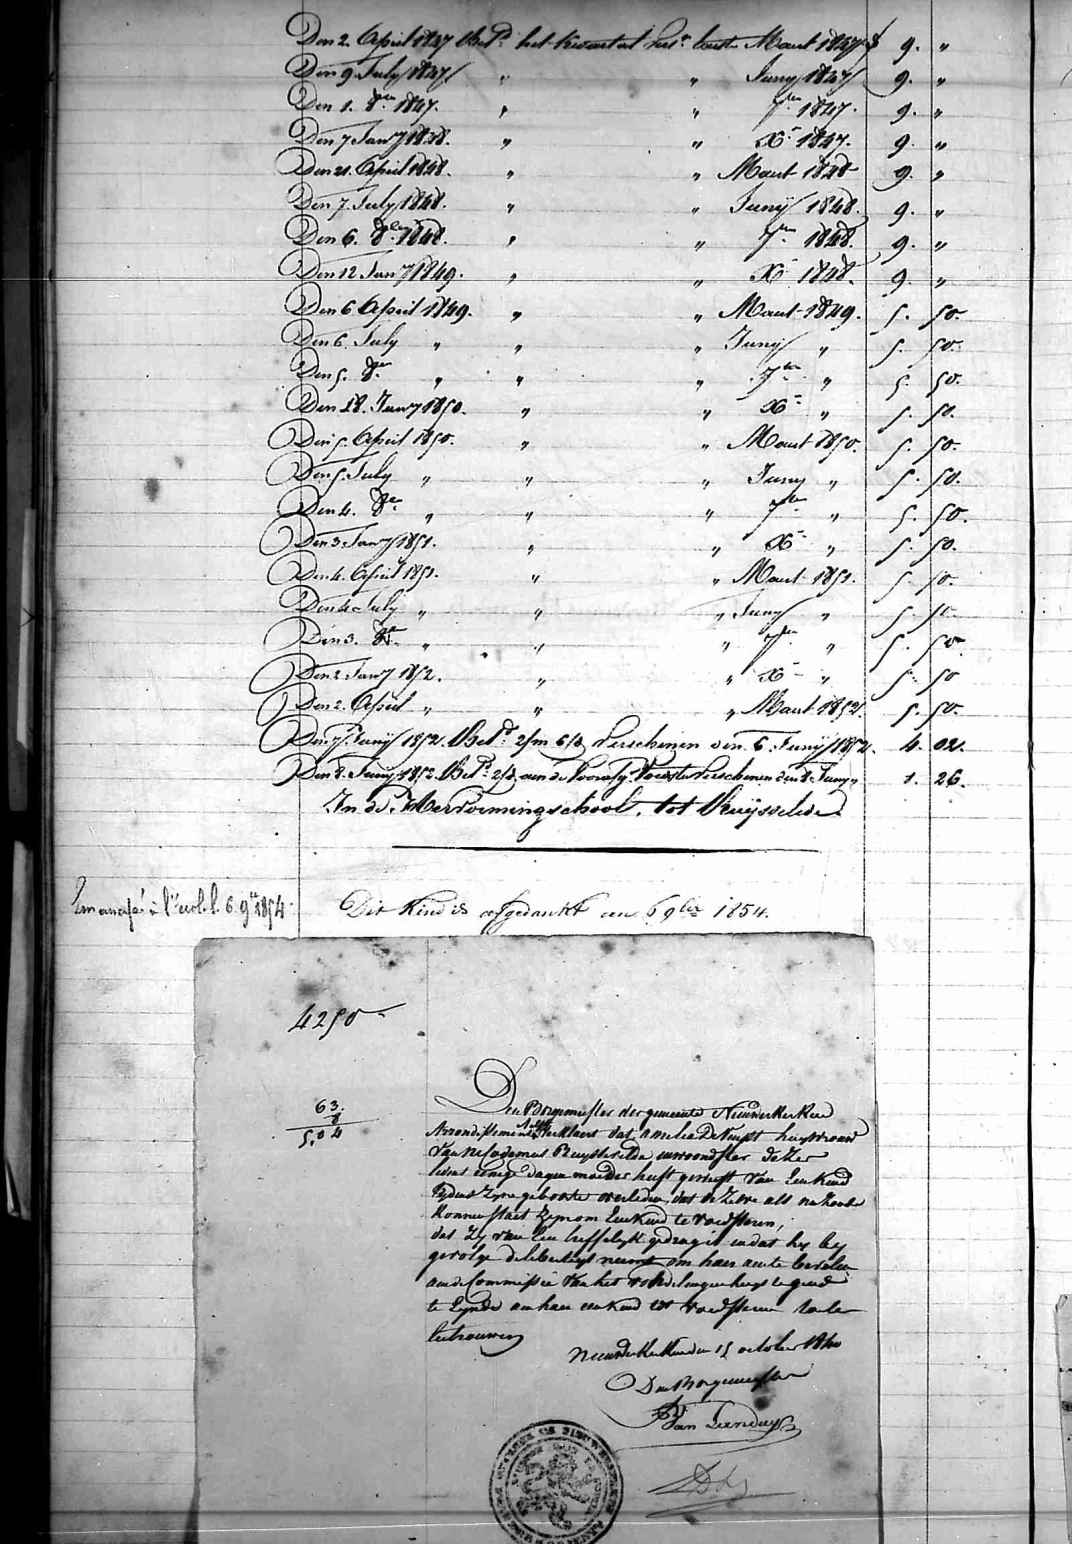 Den 2. April 1847 Bet.d het kwartaal vers.n laast Maart 1847 f 9. "
Den 9 July 1847 " " Juny 1847 9. "
Den 1. 8er 1847. " " 7ber 1847. 9. "
Den 7 Jany 1848. " " Xr 1847. 9. "
Den 21. April 1848. " " Maart 1848 9. "
Den 7. July 1848. " " Junij 1848. 9. "
Den 6. 8ber 1848. " " 7ber 1848. 9. "
Den 12 Jany 1849. " " Xr 1848. 9. "
Den 6 April 1849. " " Maart 1849. 5. 50.
Den 6. July " " " Juny " 5. 50.
Den 5. 8er " " " 7ber " 5. 50.
Den 18. Jany 1850. " " Xr " 5. 50.
Den 5. April 1850. " " Maart 1850. 5. 50.
Den 5. July " " " Juny " 5. 50.
Den 4. 8er " " " 7ber " 5. 50.
Den 3 Jany 1851. " " Xr " 5. 50.
Den 4. April 1851. " " Maart 1851. 5. 50.
Den 4 July " " " Juny " 5. 50.
Den 3. 8er " " " 7ber " 5. 50.
Den 2 Jany 1852. " " Xr " 5. 50
Den 2. April " " " Maart 1852. 5. 50.
Den 7. Junij 1852. Bet.d 2/m 6/d verschenen den 6. Junij 1852. 4. 02.
Den 8. Juny 1852 Bet.d 2/d aan de Voorsg. Voedster verschenen den 8. Juny " 1. 26.
In de Hervormingschool, tot Ruijsselede
à l'écol. l. 6. 9bre 1854.
Dit Kind is afgedankt den 6 9ber 1854.
4250
63.
8
5,04
Den Borgemester der gemeente Nieuwerkerken
Arrondissement Aelst Verklaert dat huysvrouw
van inwoondster dezer
sedert eenige dagen moeder heeft geweest van een kind
geboorte overleden, dat dezelve
staet zynom een kind te voedsteren,
dat zy van een treffelyk gedrag is, en dat hy by
gevolge neemt om haer aen te bevelen
aen de Commissie van het vondelingen huys te gend
te eynde aen haer een kind tot voedsteren
betrouwen
Nieuwerkerken den 15 october 1840
Den Borgemester
Van